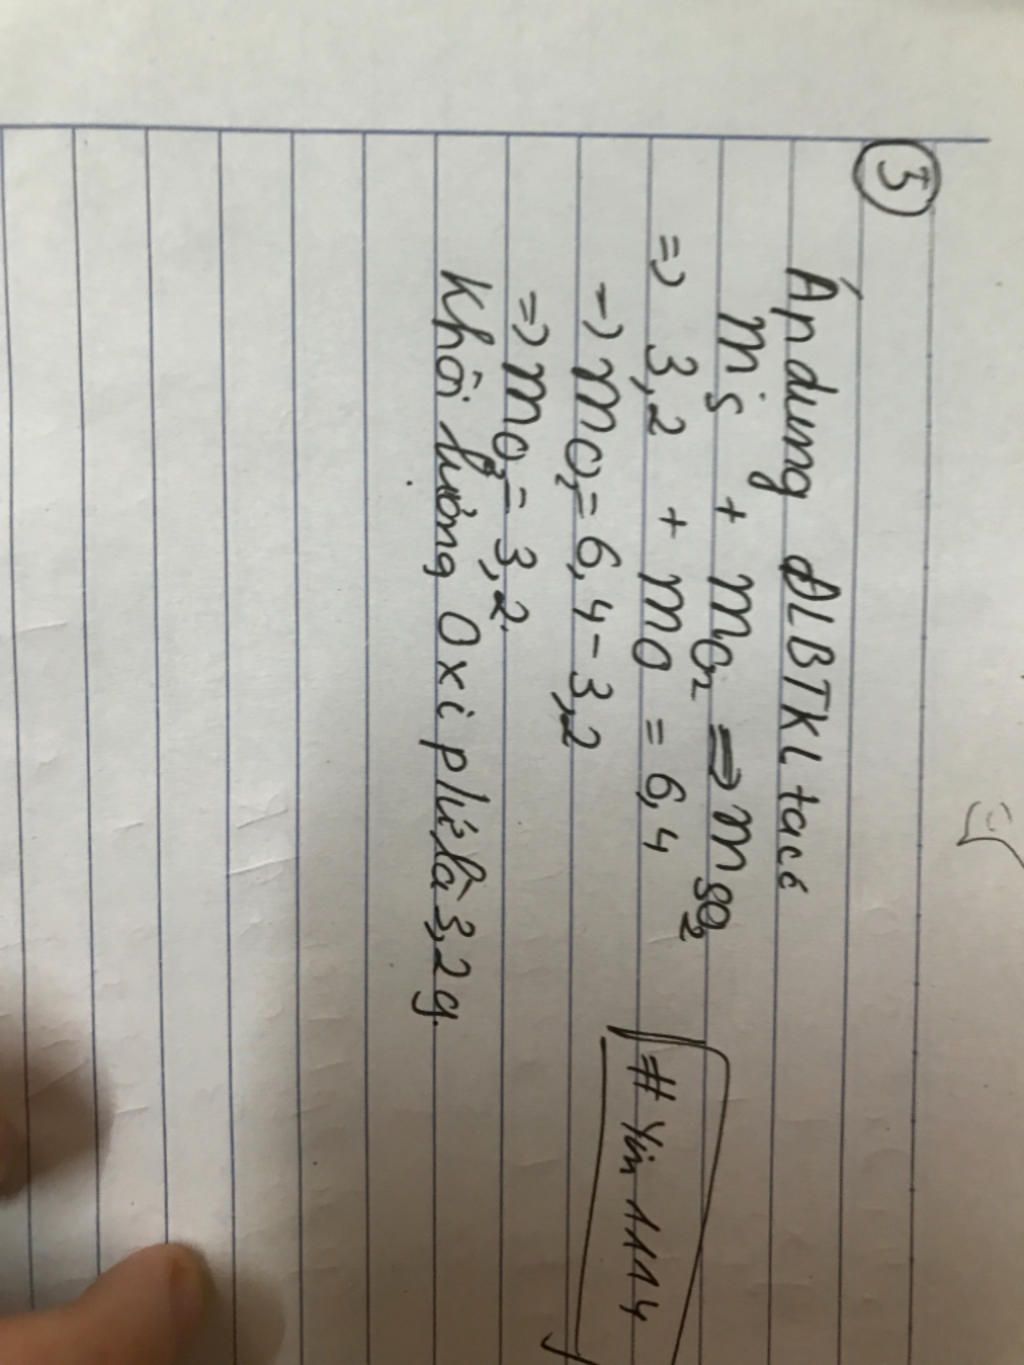 ③
Áp dụng ĐLBTKL ta có
mS + mO2 => mSO2
=> 3,2 + mO = 6,4
-> mO2 = 6,4 - 3,2
=> mO2 = 3,2.
Khối lượng Oxi p/ứ là 3,2g.
# Yin 1114